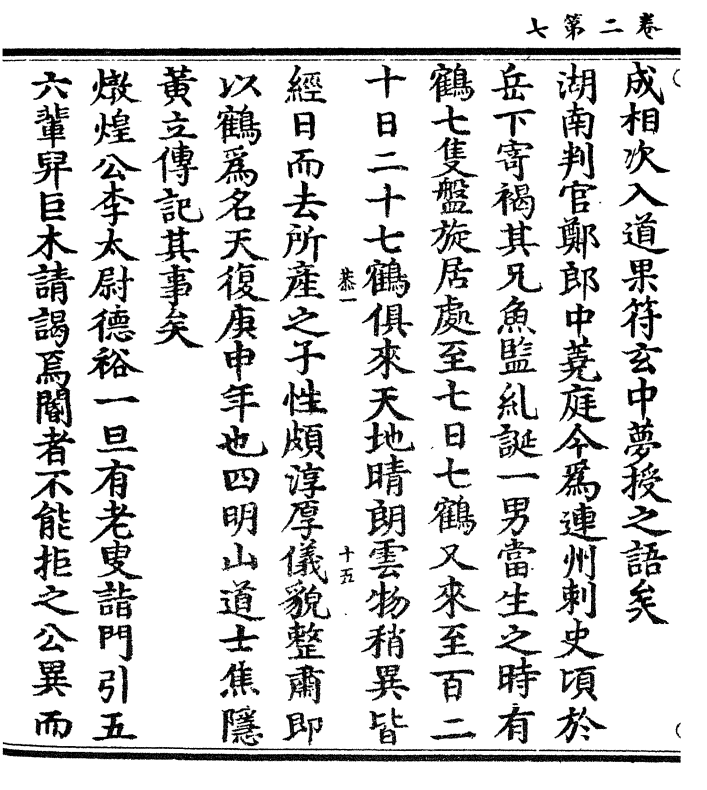 卷二第七
成相次入道果符玄中夢授之語矣
湖南判官鄭郎中蕘庭今爲連州刺史頃於
岳下寄褐其兄魚監糺誕一男當生之時有
鶴七隻盤旋居處至七日七鶴又來至百二
十日二十七鶴俱來天地晴朗雲物稍異皆
恭一
十五
經日而去所產之子性頗淳厚儀貌整肅即
以鶴爲名天復庚申年也四明山道士焦隱
黃立傳記其事矣
燉煌公李太尉德裕一旦有老叟詣門引五
六輩舁巨木請謁焉閽者不能拒之公異而